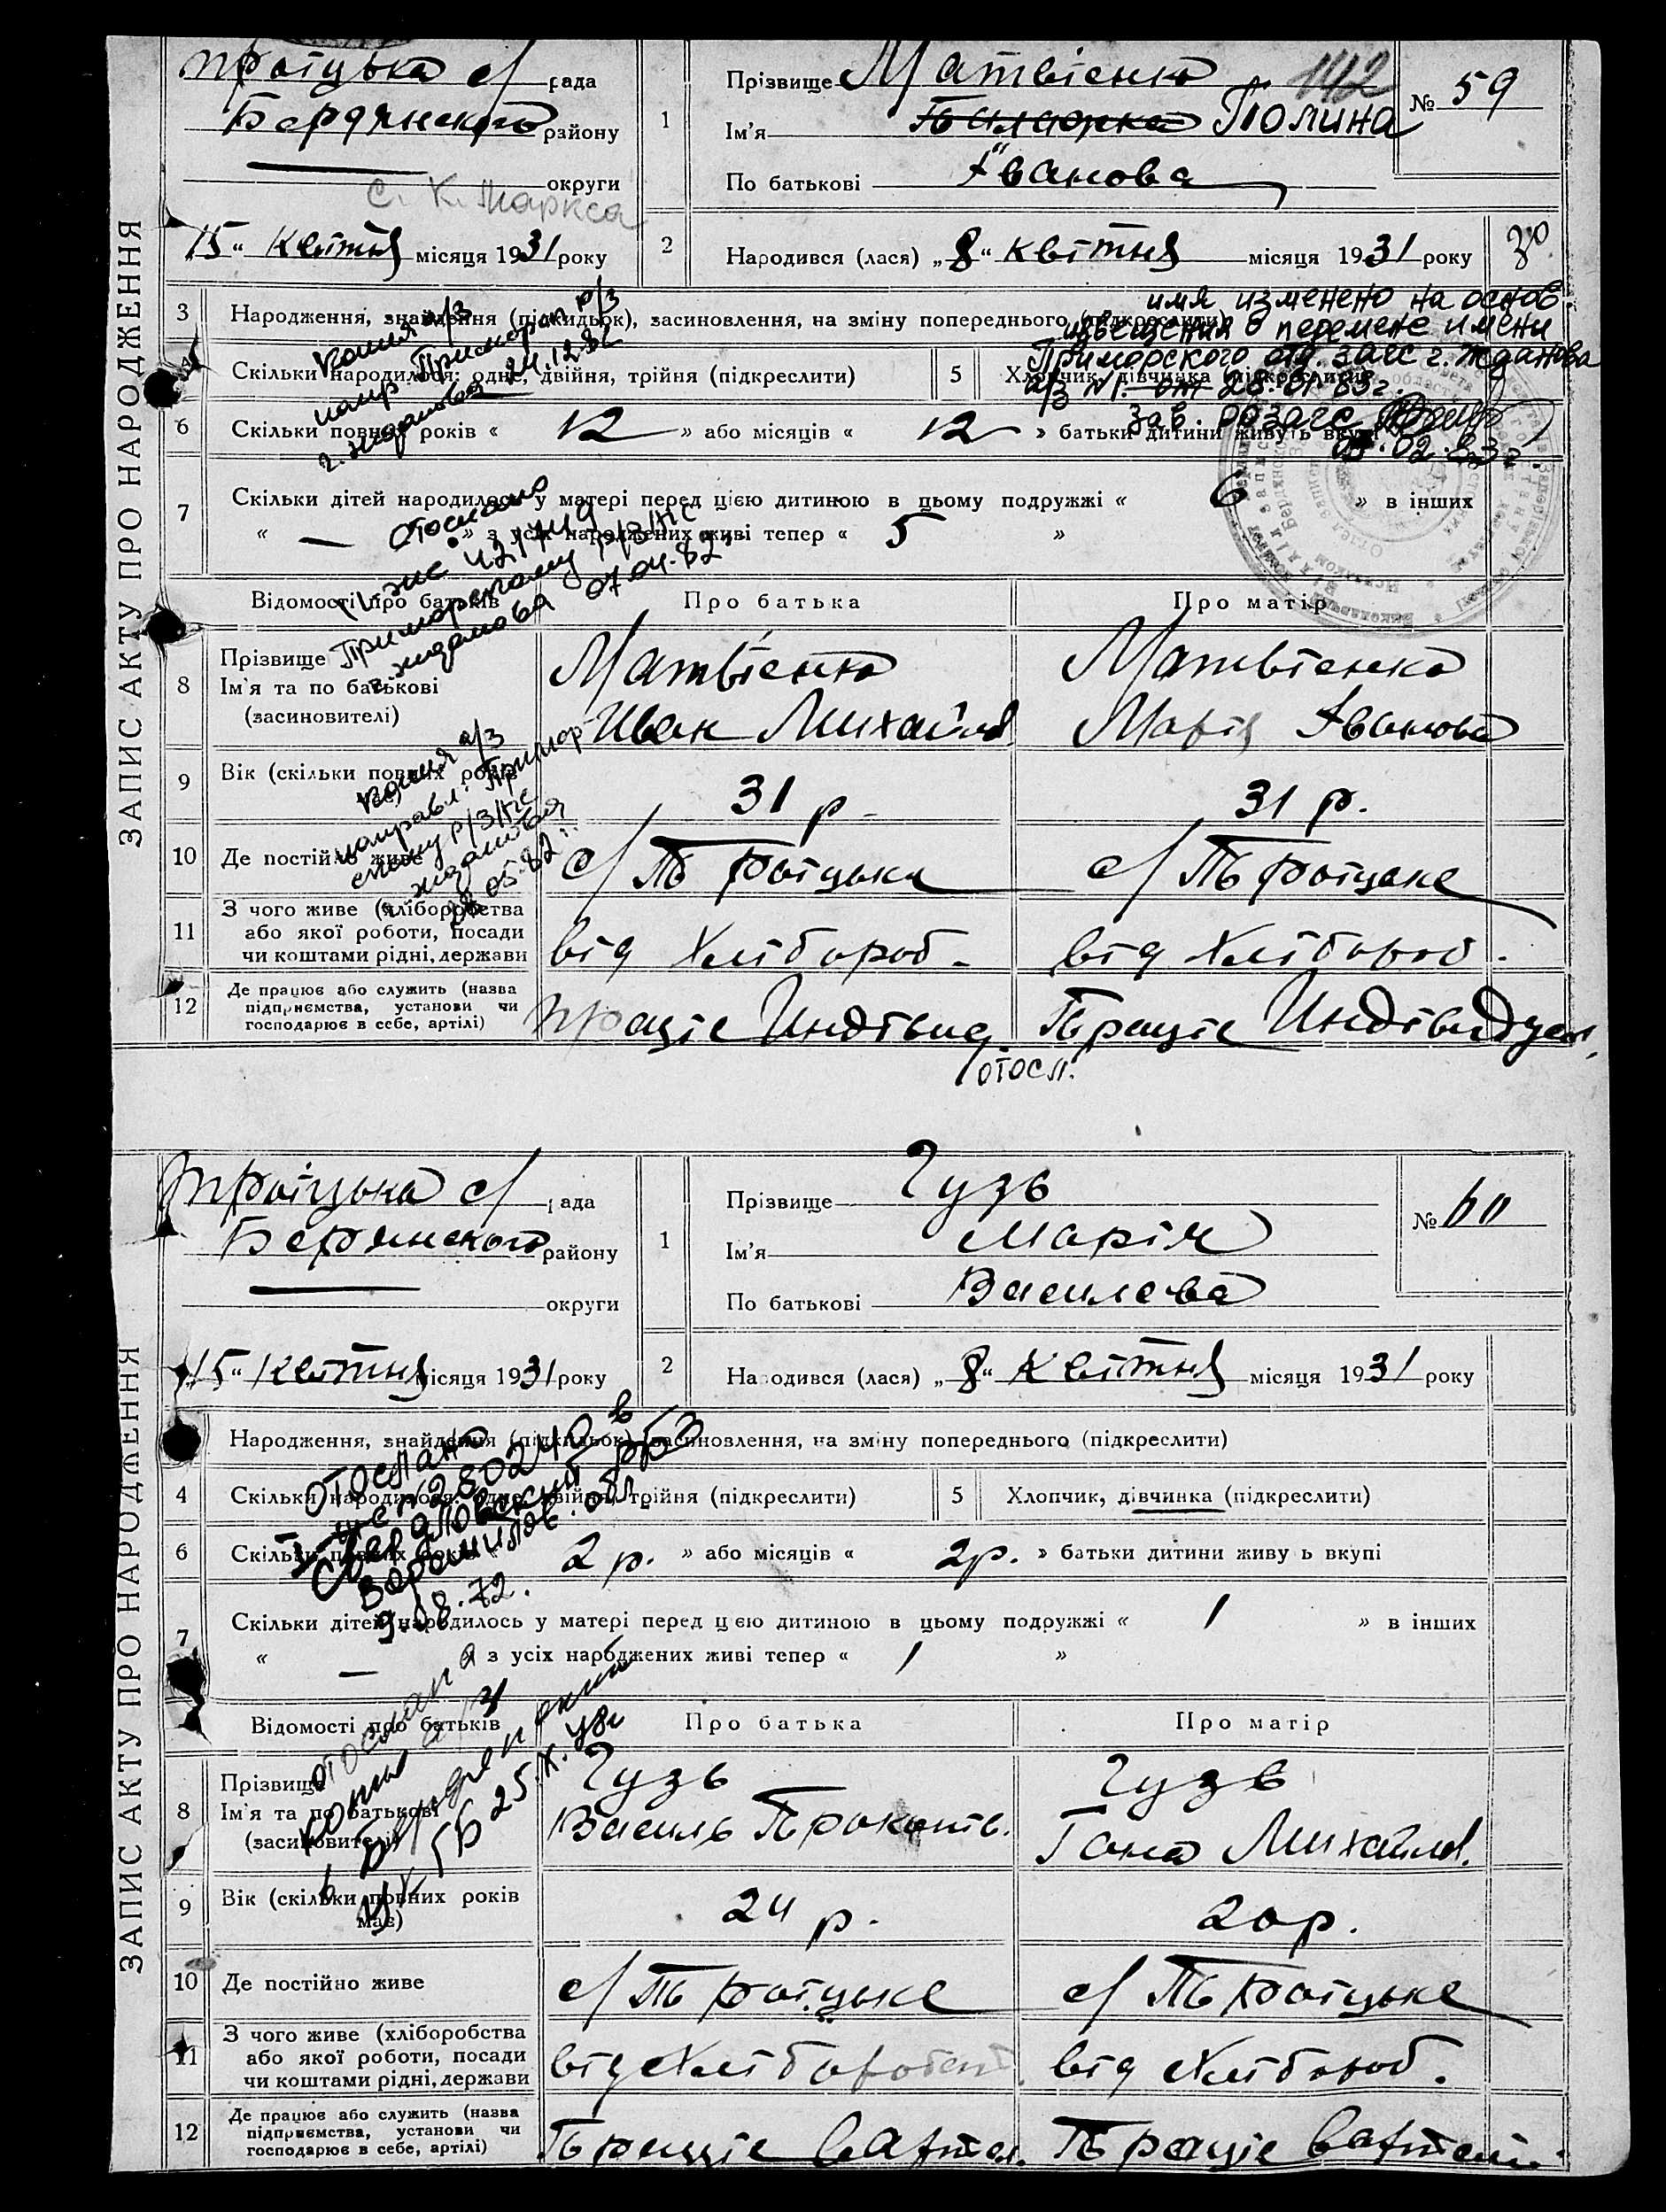 ЗАПИС АКТУ ПРО НАРОДЖЕННЯ
Троіцька с/ рада
Бердянского району
округи
С. К. Маркса
"15" Квітня місяця 1931 року
1
Прізвище Матвієнко
142
Ім'я Полина
По батькові Іванова
№ 59
2
Народився (лася) „8“ квітня місяця 1931 року
3 Народження, знайдення (підкидьок), засиновлення, на зміну попереднього (підкреслити)
имя изменено на основ.
извещения о перемене имени
Приморского отд. загс г. Жданова
а/з №1. от 28.01.83г.
зав. розагс
03.02.83г.
4 Скільки народилося: одне, двійня, трійня (підкреслити)
5 Хлопчик, дівчинка (підкреслити)
6 Скільки повних років « 12 » або місяців « 12 » батьки дитини живуть вкупі
копия а/з
напр Приморск р/з
г. Жданова 24.12.82
7 Скільки дітей народилось у матері перед цією дитиною в цьому подружжі « 6 » в інших
« — » з усіх народжених живі тепер « 5 »
Отослано
421749
Приморскому р/загс
г. Жданова 07.04.82
Відомості про батьків
Про батька
Про матір
8 Прізвище
Ім'я та по батькові
(засиновителі)
Матвієнко
Иван Михайлов
Матвієнко
Марія Іванова
9 Вік (скільки повних років
31 р.
31 р.
копия а/з
направл. Примор
скому р/загс
г. Жданова
05.82
10 Де постійно живе
с/ Троіцьке
с/ Троіцьке
11 З чого живе (хліборобства
або якої роботи, посади
чи коштами рідні, держави
від Хлібороб.
від Хлібороб.
12 Де працює або служить (назва
підприємства, установи чи
господарює в себе, артілі)
Працює Индівид.
Працює Индівидуал.
отосл.
ЗАПИС АКТУ ПРО НАРОДЖЕННЯ
Троіцька с/ рада
Бердянского району
округи
"15" Квітня місяця 1931 року
1
Прізвище Гузь
Ім'я Марія
По батькові Василева
№ 60
2
Народився (лася) „8“ Квітня місяця 1931 року
Народження, знайдення (підкидьок), засиновлення, на зміну попереднього (підкреслити)
4 Скільки народилося: одне, двійня, трійня (підкреслити)
5 Хлопчик, дівчинка (підкреслити)
отослано
280240 в
Свердловский рбз
Ворошилов. обл.
9.08.72.
6 Скільки повних років « 2 р. » або місяців « 2р. » батьки дитини живуть вкупі
7 Скільки дітей народилось у матері перед цією дитиною в цьому подружжі « 1 » в інших
« — » з усіх народжених живі тепер « 1 »
Відомості про батьків
Про батька
Про матір
отослана
копия а/з
25.X.48г
8 Прізвище
Ім'я та по батькові
(засиновителі)
Гузь
Василь Прокопів.
Гузь
Гана Михайлов.
9 Вік (скільки повних років
має)
24 р.
20р.
10 Де постійно живе
с/ Троіцьке
с/ Троіцьке
11 З чого живе (хліборобства
або якої роботи, посади
чи коштами рідні, держави
від Хлібороб
від Хлібороб.
12 Де працює або служить (назва
підприємства, установи чи
господарює в себе, артілі)
Працює в артіл.
Працює в артілі